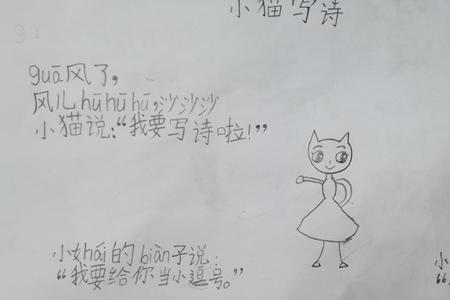 小猫写诗
guā风了，
风儿hūhūhū，沙沙沙
小猫说：“我要写诗啦！”
小nǚhái的biàn子说：
“我要给你当小逗号。”
小
“